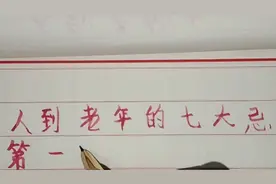 人到老年的七大忌
第一